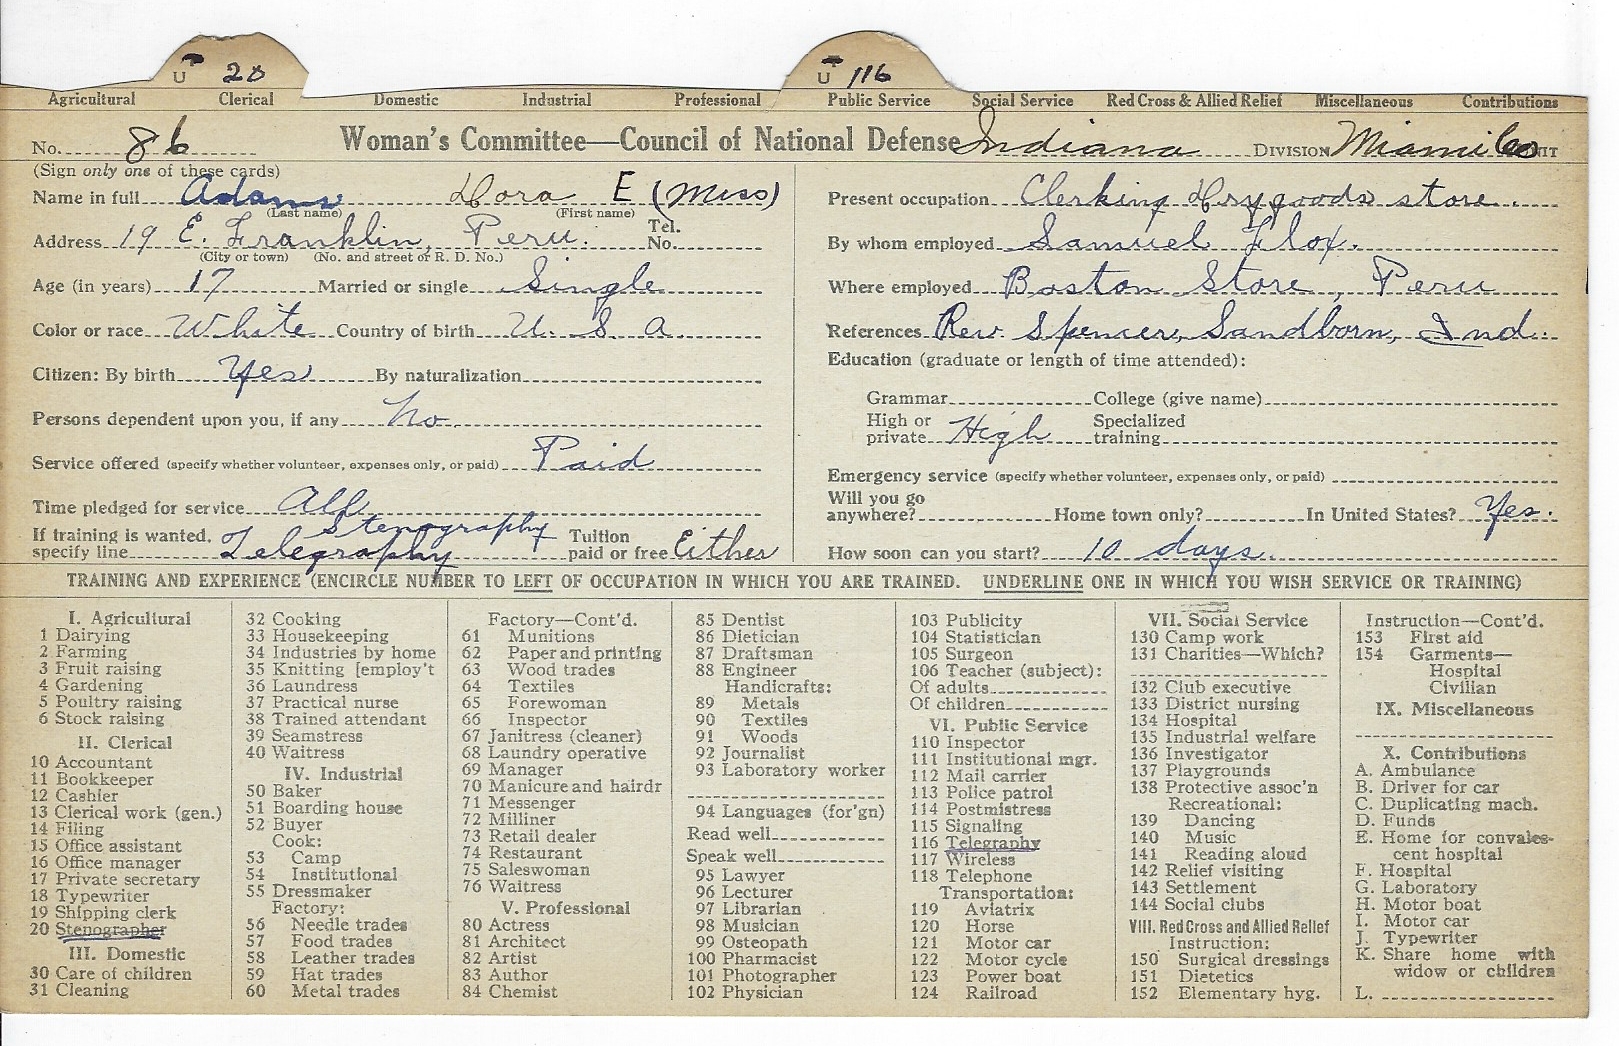 U 20 U 116
Agricultural Clerical Domestic Industrial Professional Public Service Social Service Red Cross & Allied Relief Miscellaneous Contributions
No. 86 Woman's Committee—Council of National Defense Indiana DIVISION Miami Co UNIT
(Sign only one of these cards)
Name in full Adams Dora E (Miss)
(Last name) (First name)
Address 19 E. Franklin, Peru. Tel. No.
(City or town) (No. and street or R. D. No.)
Age (in years) 17 Married or single Single
Color or race White Country of birth U. S. A
Citizen: By birth Yes By naturalization
Persons dependent upon you, if any No
Service offered (specify whether volunteer, expenses only, or paid) Paid
Time pledged for service All
If training is wanted, specify line Stenography Telegraphy Tuition paid or free Either
Present occupation Clerking Drygoods store.
By whom employed Samuel Flox.
Where employed Boston Store, Peru
References Rev. Spencer, Sandborn, Ind.
Education (graduate or length of time attended):
Grammar College (give name)
High or private High Specialized training
Emergency service (specify whether volunteer, expenses only, or paid)
Will you go anywhere? Home town only? In United States? Yes.
How soon can you start? 10 days.
TRAINING AND EXPERIENCE (ENCIRCLE NUMBER TO LEFT OF OCCUPATION IN WHICH YOU ARE TRAINED. UNDERLINE ONE IN WHICH YOU WISH SERVICE OR TRAINING)
I. Agricultural
1 Dairying
2 Farming
3 Fruit raising
4 Gardening
5 Poultry raising
6 Stock raising
II. Clerical
10 Accountant
11 Bookkeeper
12 Cashier
13 Clerical work (gen.)
14 Filing
15 Office assistant
16 Office manager
17 Private secretary
18 Typewriter
19 Shipping clerk
20 Stenographer
III. Domestic
30 Care of children
31 Cleaning
32 Cooking
33 Housekeeping
34 Industries by home
35 Knitting [employ't
36 Laundress
37 Practical nurse
38 Trained attendant
39 Seamstress
40 Waitress
IV. Industrial
50 Baker
51 Boarding house
52 Buyer
Cook:
53 Camp
54 Institutional
55 Dressmaker
Factory:
56 Needle trades
57 Food trades
58 Leather trades
59 Hat trades
60 Metal trades
Factory—Cont'd.
61 Munitions
62 Paper and printing
63 Wood trades
64 Textiles
65 Forewoman
66 Inspector
67 Janitress (cleaner)
68 Laundry operative
69 Manager
70 Manicure and hairdr
71 Messenger
72 Milliner
73 Retail dealer
74 Restaurant
75 Saleswoman
76 Waitress
V. Professional
80 Actress
81 Architect
82 Artist
83 Author
84 Chemist
85 Dentist
86 Dietician
87 Draftsman
88 Engineer
Handicrafts:
89 Metals
90 Textiles
91 Woods
92 Journalist
93 Laboratory worker
94 Languages (for'gn)
Read well
Speak well
95 Lawyer
96 Lecturer
97 Librarian
98 Musician
99 Osteopath
100 Pharmacist
101 Photographer
102 Physician
103 Publicity
104 Statistician
105 Surgeon
106 Teacher (subject):
Of adults
Of children
VI. Public Service
110 Inspector
111 Institutional mgr.
112 Mail carrier
113 Police patrol
114 Postmistress
115 Signaling
116 Telegraphy
117 Wireless
118 Telephone
Transportation:
119 Aviatrix
120 Horse
121 Motor car
122 Motor cycle
123 Power boat
124 Railroad
VII. Social Service
130 Camp work
131 Charities—Which?
132 Club executive
133 District nursing
134 Hospital
135 Industrial welfare
136 Investigator
137 Playgrounds
138 Protective assoc'n
Recreational:
139 Dancing
140 Music
141 Reading aloud
142 Relief visiting
143 Settlement
144 Social clubs
VIII. Red Cross and Allied Relief
Instruction:
150 Surgical dressings
151 Dietetics
152 Elementary hyg.
Instruction—Cont'd.
153 First aid
154 Garments—
Hospital
Civilian
IX. Miscellaneous
X. Contributions
A. Ambulance
B. Driver for car
C. Duplicating mach.
D. Funds
E. Home for convales-
cent hospital
F. Hospital
G. Laboratory
H. Motor boat
I. Motor car
J. Typewriter
K. Share home with
widow or children
L.